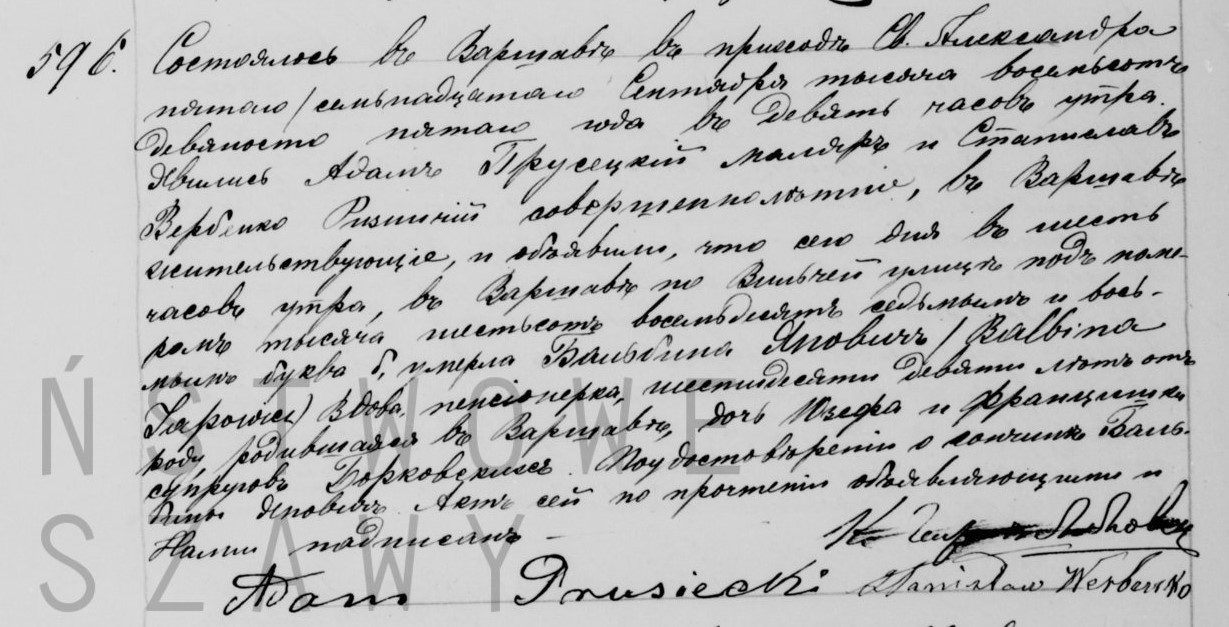 596. Состоялось въ Варшавѣ въ приходѣ Св. Александра
пятаго / семьнадцатаго Сентября тысяча восемьсотъ
девяносто пятаго года въ девять часовъ утра.
Явились Адамъ Прусецкій маляръ и Станиславъ
Вербенко Ризничій совершеннолѣтніе, въ Варшавѣ
жительствующіе, и объявили, что сего дня въ шесть
часовъ утра, въ Варшавѣ по Вильчей улицѣ подъ номе-
ромъ тысяча шестьсотъ восемьдесятъ седьмымъ и вось-
мымъ буква б, умерла Бальбина Яновичъ / Balbina
Janowicz) Вдова, пенсіонерка, шестидесяти девяти лѣтъ отъ
роду, родившаяся въ Варшавѣ, дочь Юзефа и Францишки
супруговъ Борковскихъ. По удостовѣреніи о кончинѣ Баль-
бины Яновичъ Актъ сей по прочтеніи объявляющими и
Нами подписанъ
Adam Prusiecki Stanisław Werbenko
ŃSTWOWE
SZAWY